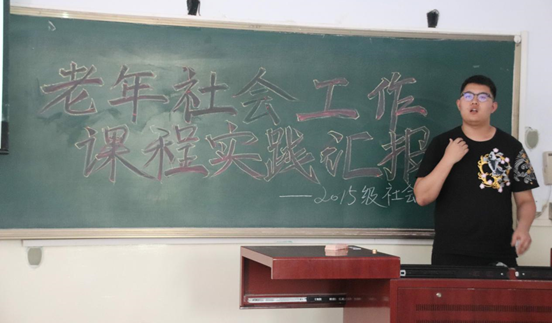 老年社会工作
课程实践汇报
——2015级社会